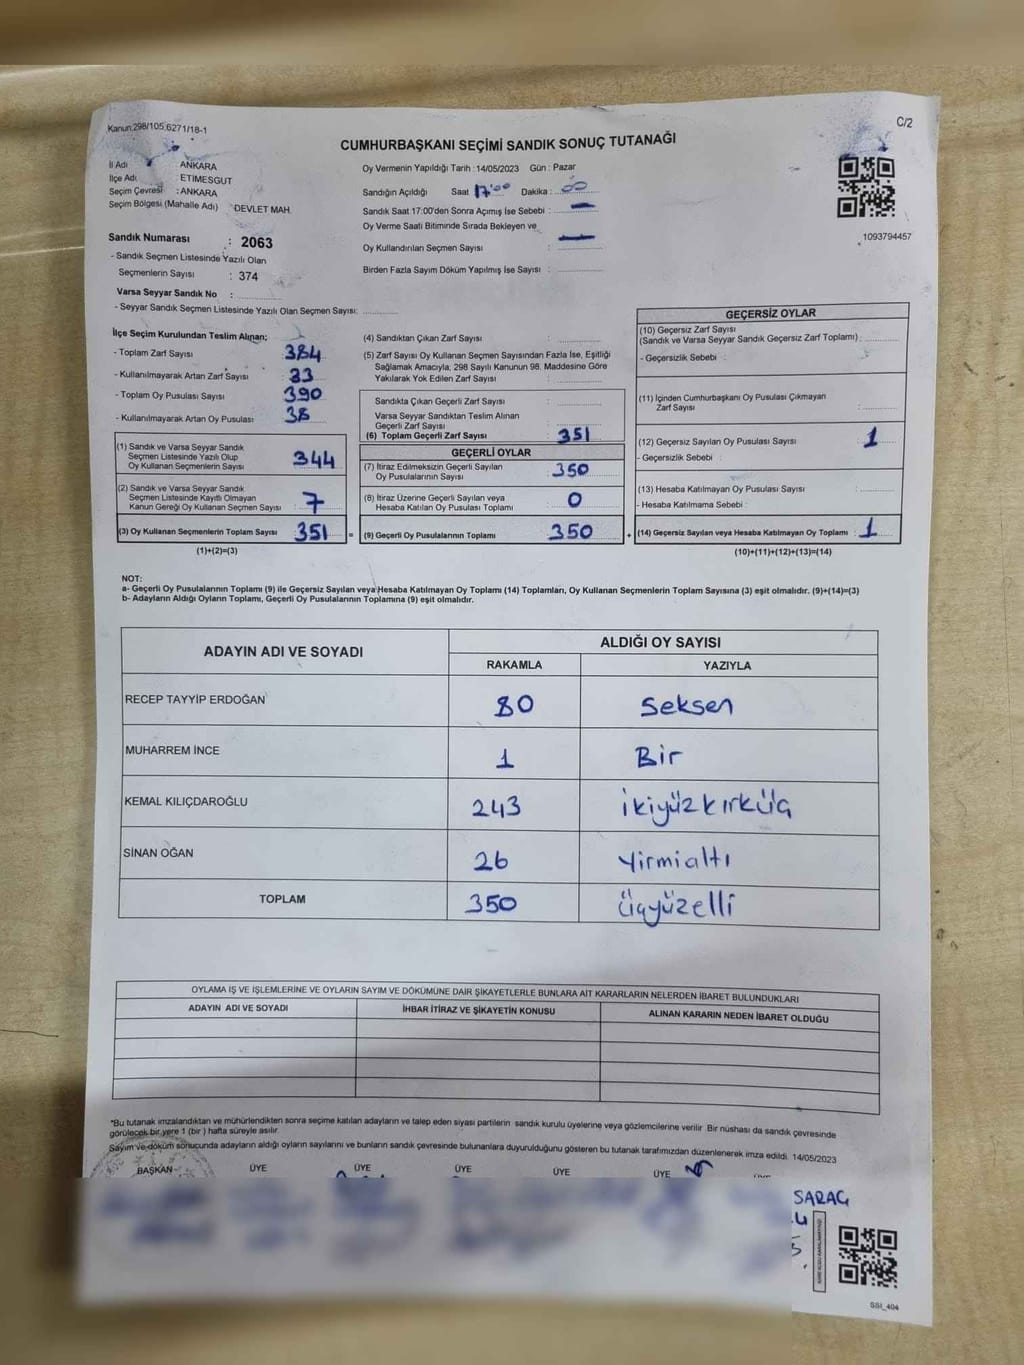 Kanun:298/105;6271/18-1
C/2
CUMHURBAŞKANI SEÇİMİ SANDIK SONUÇ TUTANAĞI
İl Adı : ANKARA
İlçe Adı : ETİMESGUT
Seçim Çevresi : ANKARA
Seçim Bölgesi (Mahalle Adı) DEVLET MAH.
Sandık Numarası : 2063
- Sandık Seçmen Listesinde Yazılı Olan
Seçmenlerin Sayısı : 374
Varsa Seyyar Sandık No :
- Seyyar Sandık Seçmen Listesinde Yazılı Olan Seçmen Sayısı:
Oy Vermenin Yapıldığı Tarih : 14/05/2023 Gün : Pazar
Sandığın Açıldığı Saat 17'00 Dakika : 00
Sandık Saat 17:00'den Sonra Açımış İse Sebebi : —
Oy Verme Saati Bitiminde Sırada Bekleyen ve
Oy Kullandırılan Seçmen Sayısı : —
Birden Fazla Sayım Döküm Yapılmış İse Sayısı :
1093794457
İlçe Seçim Kurulundan Teslim Alınan;
- Toplam Zarf Sayısı : 384
- Kullanılmayarak Artan Zarf Sayısı : 33
- Toplam Oy Pusulası Sayısı : 390
- Kullanılmayarak Artan Oy Pusulası : 38
(1) Sandık ve Varsa Seyyar Sandık
Seçmen Listesinde Yazılı Olup
Oy Kullanan Seçmenlerin Sayısı : 344
(2) Sandık ve Varsa Seyyar Sandık
Seçmen Listesinde Kayıtlı Olmayan
Kanun Gereği Oy Kullanan Seçmen Sayısı : 7
(3) Oy Kullanan Seçmenlerin Toplam Sayısı : 351 =
(1)+(2)=(3)
(4) Sandıktan Çıkan Zarf Sayısı :
(5) Zarf Sayısı Oy Kullanan Seçmen Sayısından Fazla İse, Eşitliği
Sağlamak Amacıyla, 298 Sayılı Kanunun 98. Maddesine Göre
Yakılarak Yok Edilen Zarf Sayısı :
Sandıkta Çıkan Geçerli Zarf Sayısı :
Varsa Seyyar Sandıktan Teslim Alınan
Geçerli Zarf Sayısı :
(6) Toplam Geçerli Zarf Sayısı : 351
GEÇERLİ OYLAR
(7) İtiraz Edilmeksizin Geçerli Sayılan
Oy Pusulalarının Sayısı : 350
(8) İtiraz Üzerine Geçerli Sayılan veya
Hesaba Katılan Oy Pusulası Toplamı : 0
(9) Geçerli Oy Pusulalarının Toplamı : 350 +
GEÇERSİZ OYLAR
(10) Geçersiz Zarf Sayısı
(Sandık ve Varsa Seyyar Sandık Geçersiz Zarf Toplamı) :
- Geçersizlik Sebebi :
(11) İçinden Cumhurbaşkanı Oy Pusulası Çıkmayan
Zarf Sayısı :
(12) Geçersiz Sayılan Oy Pusulası Sayısı : 1
- Geçersizlik Sebebi :
(13) Hesaba Katılmayan Oy Pusulası Sayısı :
- Hesaba Katılmama Sebebi :
(14) Geçersiz Sayılan veya Hesaba Katılmayan Oy Toplamı : 1
(10)+(11)+(12)+(13)=(14)
NOT:
a- Geçerli Oy Pusulalarının Toplamı (9) ile Geçersiz Sayılan veya Hesaba Katılmayan Oy Toplamı (14) Toplamları, Oy Kullanan Seçmenlerin Toplam Sayısına (3) eşit olmalıdır. (9)+(14)=(3)
b- Adayların Aldığı Oyların Toplamı, Geçerli Oy Pusulalarının Toplamına (9) eşit olmalıdır.
ADAYIN ADI VE SOYADI ALDIĞI OY SAYISI
RAKAMLA YAZIYLA
RECEP TAYYİP ERDOĞAN 80 Seksen
MUHARREM İNCE 1 Bir
KEMAL KILIÇDAROĞLU 243 ikiyüzkırküç
SİNAN OĞAN 26 Yirmialtı
TOPLAM 350 Üçyüzelli
OYLAMA İŞ VE İŞLEMLERİNE VE OYLARIN SAYIM VE DÖKÜMÜNE DAİR ŞİKAYETLERLE BUNLARA AİT KARARLARIN NELERDEN İBARET BULUNDUKLARI
ADAYIN ADI VE SOYADI İHBAR İTİRAZ VE ŞİKAYETİN KONUSU ALINAN KARARIN NEDEN İBARET OLDUĞU
*Bu tutanak imzalandıktan ve mühürlendikten sonra seçime katılan adayların ve talep eden siyasi partilerin sandık kurulu üyelerine veya gözlemcilerine verilir. Bir nüshası da sandık çevresinde
görülecek bir yere 1 (bir) hafta süreyle asılır.
Sayım ve döküm sonucunda adayların aldığı oyların sayılarını ve bunların sandık çevresinde bulunanlara duyurulduğunu gösteren bu tutanak tarafımızdan düzenlenerek imza edildi. 14/05/2023
BAŞKAN ÜYE ÜYE ÜYE ÜYE ÜYE
SARAÇ
SSI_404